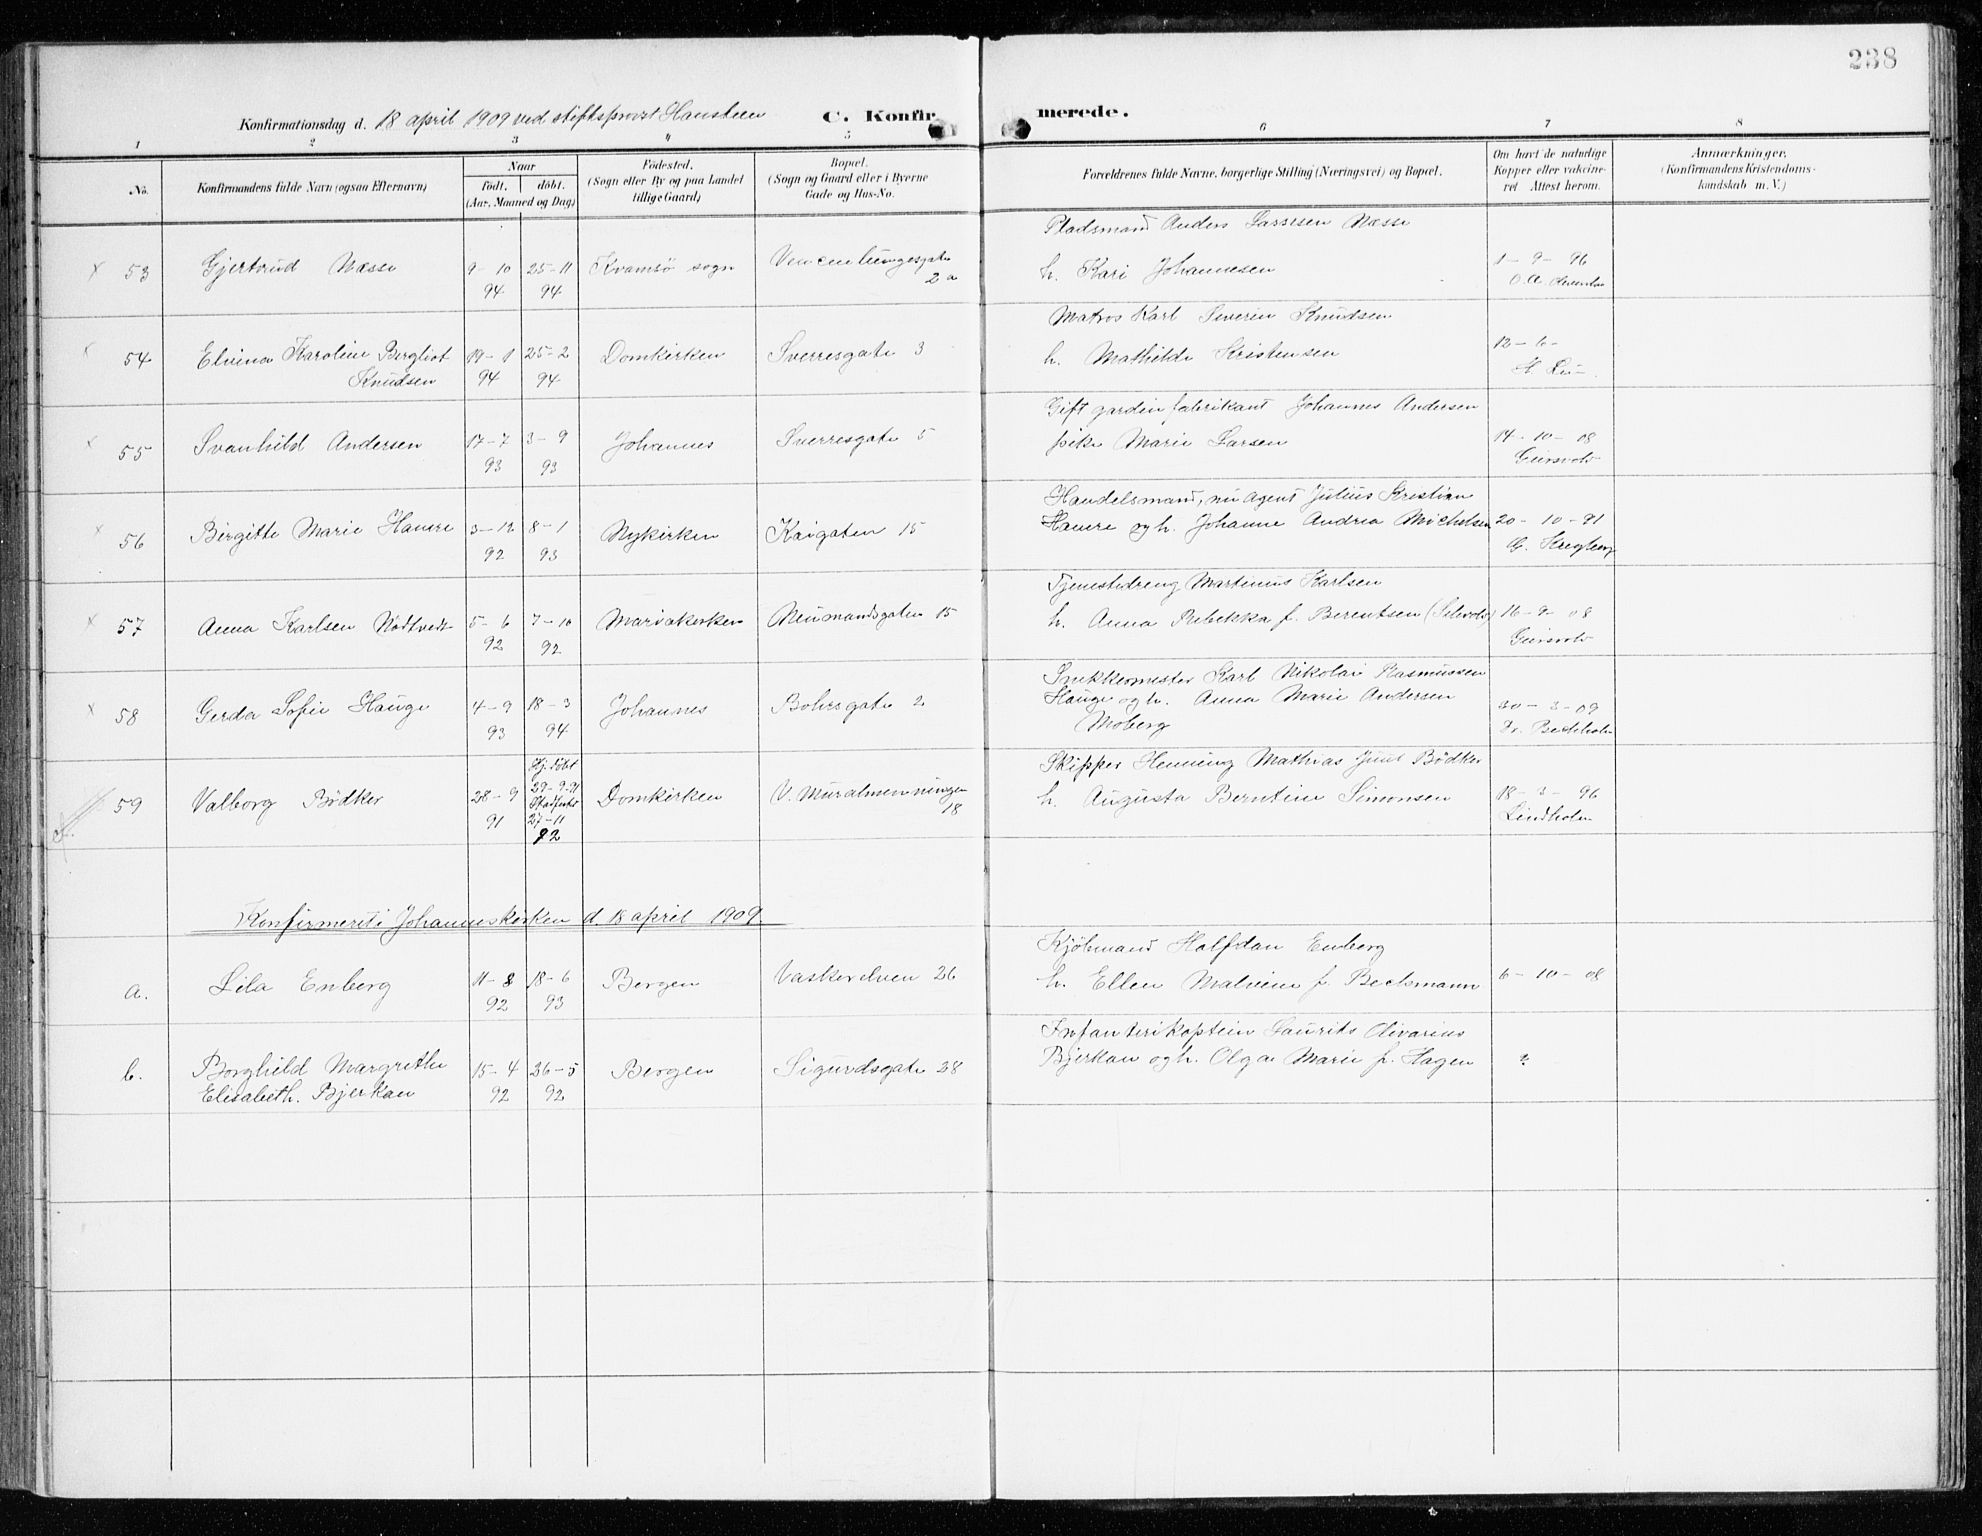 238
Konfirmationsdag d. 18 april 1909 ved stiftsprovst Hansteen C. Konfirmerede.
1 2 3 4 5 6 7 8
No.
Konfirmandens fulde Navn (ogsaa Efternavn)
Naar
födt. döbt.
(Aar, Maaned og Dag)
Födested.
(Sogn eller By og paa Landet
tillige Gaard)
Bopæl.
(Sogn og Gaard eller i Byerne
Gade og Hus-No.
Forældrenes fulde Navne, borgerlige Stilling (Næringsvei) og Bopæl.
Om havt de naturlige
Kopper eller vaksine-
ret Attest herom.
Anmærkninger.
(Konfirmandens Kristendoms-
kundskab m. V.)
Pladsmand Anders Larssen Næsse
x 53 Gjertrud Næsse 9-10 25-11 Kvamsö sogn h. Kari Johannesen 1-9-96
94 94 2 a
Matros Karl Severin Knudsen
x 54 Elvina Karoline Bergliot 19-1 25-2 Domkirken Sverresgate 3 h. Mathilde Kristensen 12-6-
Knudsen 94 94
Gift gardinfabrikant Johannes Andersen
x 55 Svanhild Andersen 17-7 3-9 Johannes Sverresgate 5 pike Marie Larsen 14-10-08
93 93 Geirsvold
Handelsmand, nu agent Julius Kristian
x 56 Birgitte Marie Hauere 3-12 8-1 Nykirken Kaigaten 15 Hauere og h. Johanne Andrea Michelsen 20-10-91
92 93
Tjenestedreng Martinus Karlsen
x 57 Anna Karlsen Nödtvedt 5-6 7-10 Mariakirken Neumandsgaten 15 h. Anna Rebekka f. Berentsen 16-9-08
92 92 Geirsvold
Snekkermester Karl Nikolai Rasmussen
x 58 Gerda Sofie Hauge 4-9 18-3 Johannes Bohrsgate 2 Hauge og h. Anna Marie Andersen 30-3-09
93 94 Moberg
Hj. döbt
Skipper Henning Mathias Juul Bödker
59 Valborg Bödker 28-9 29-9-91 Domkirken V. Muralmenningen h. Augusta Berntine Simonsen 18-3-96
91 27-11 18 Lindholm
92
Konfirmert i Johanneskirken d. 18 april 1909.
Kjöbmand Halfdan Enberg
a. Lila Enberg 11-8 18-6 Bergen Vaskerelven 26 h. Ellen Malvine f. Bechsmann 6-10-08
92 93
Infanterikaptein Laurits Olivarius
b. Borghild Margrethe 15-4 26-5 Bergen Sigurdsgate 28 Bjerkan og h. Olga Marie f. Hagen ?
Elisabeth Bjerkan 92 92